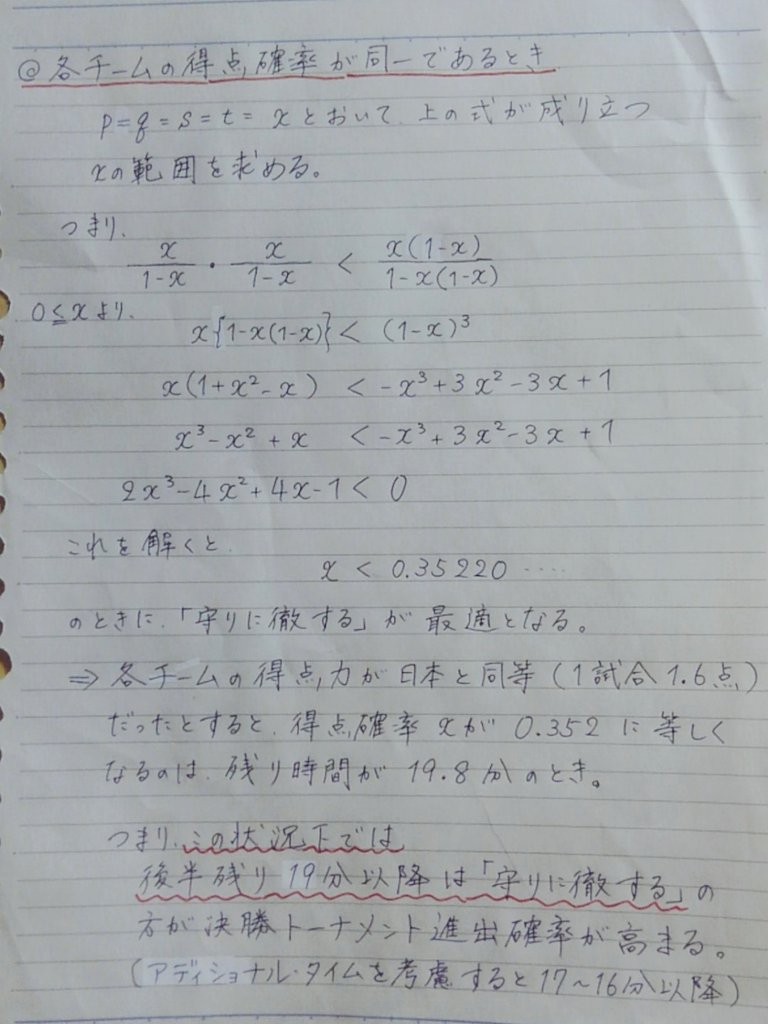 ◎各チームの得点確率が同一であるとき
p=q=s=t=xとおいて、上の式が成り立つ
xの範囲を求める。
つまり、
x/(1-x)・x/(1-x) < x(1-x)/(1-x(1-x))
0≦xより、
x{1-x(1-x)} < (1-x)³
x(1+x²-x) < -x³+3x²-3x+1
x³-x²+x < -x³+3x²-3x+1
2x³-4x²+4x-1 < 0
これを解くと、
x < 0.35220 ....
のときに、「守りに徹する」が最適となる。
⇒ 各チームの得点力が日本と同等(1試合1.6点)
だったとすると、得点確率xが0.352に等しく
なるのは、残り時間が19.8分のとき。
つまり、この状況下では
後半残り19分以降は「守りに徹する」の
方が決勝トーナメント進出確率が高まる。
(アディショナル・タイムを考慮すると17~16分以降)